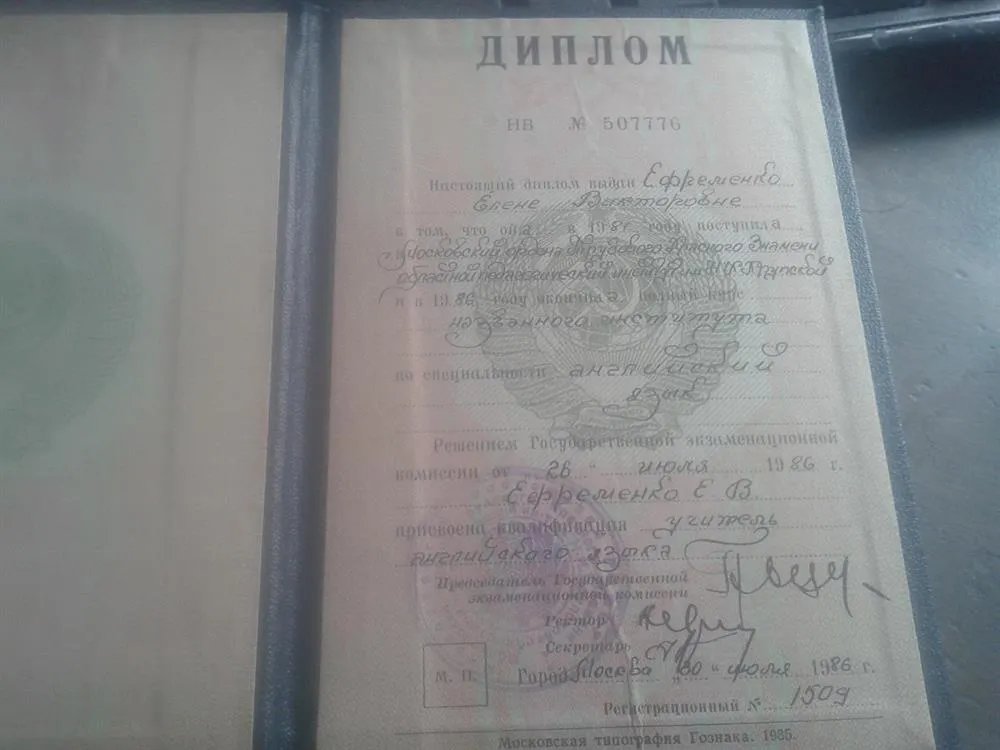 ДИПЛОМ
НВ № 507776
Настоящий диплом выдан Ефременко
Елене Викторовне
в том, что она в 1981 году поступила
в Московский ордена Трудового Красного Знамени
областной педагогический институт им. Н.К.Крупской
и в 1986 году окончила полный курс
названного института
по специальности английский
язык
Решением Государственной экзаменационной
комиссии от " 26 " июля 1986 г.
Ефременко Е В
присвоена квалификация учитель
английского языка
Председатель Государственной
экзаменационной комиссии
Ректор
Секретарь
М. П.
Город Москва " 30 " июля 1986 г.
Регистрационный № 1509
Московская типография Гознака. 1985.